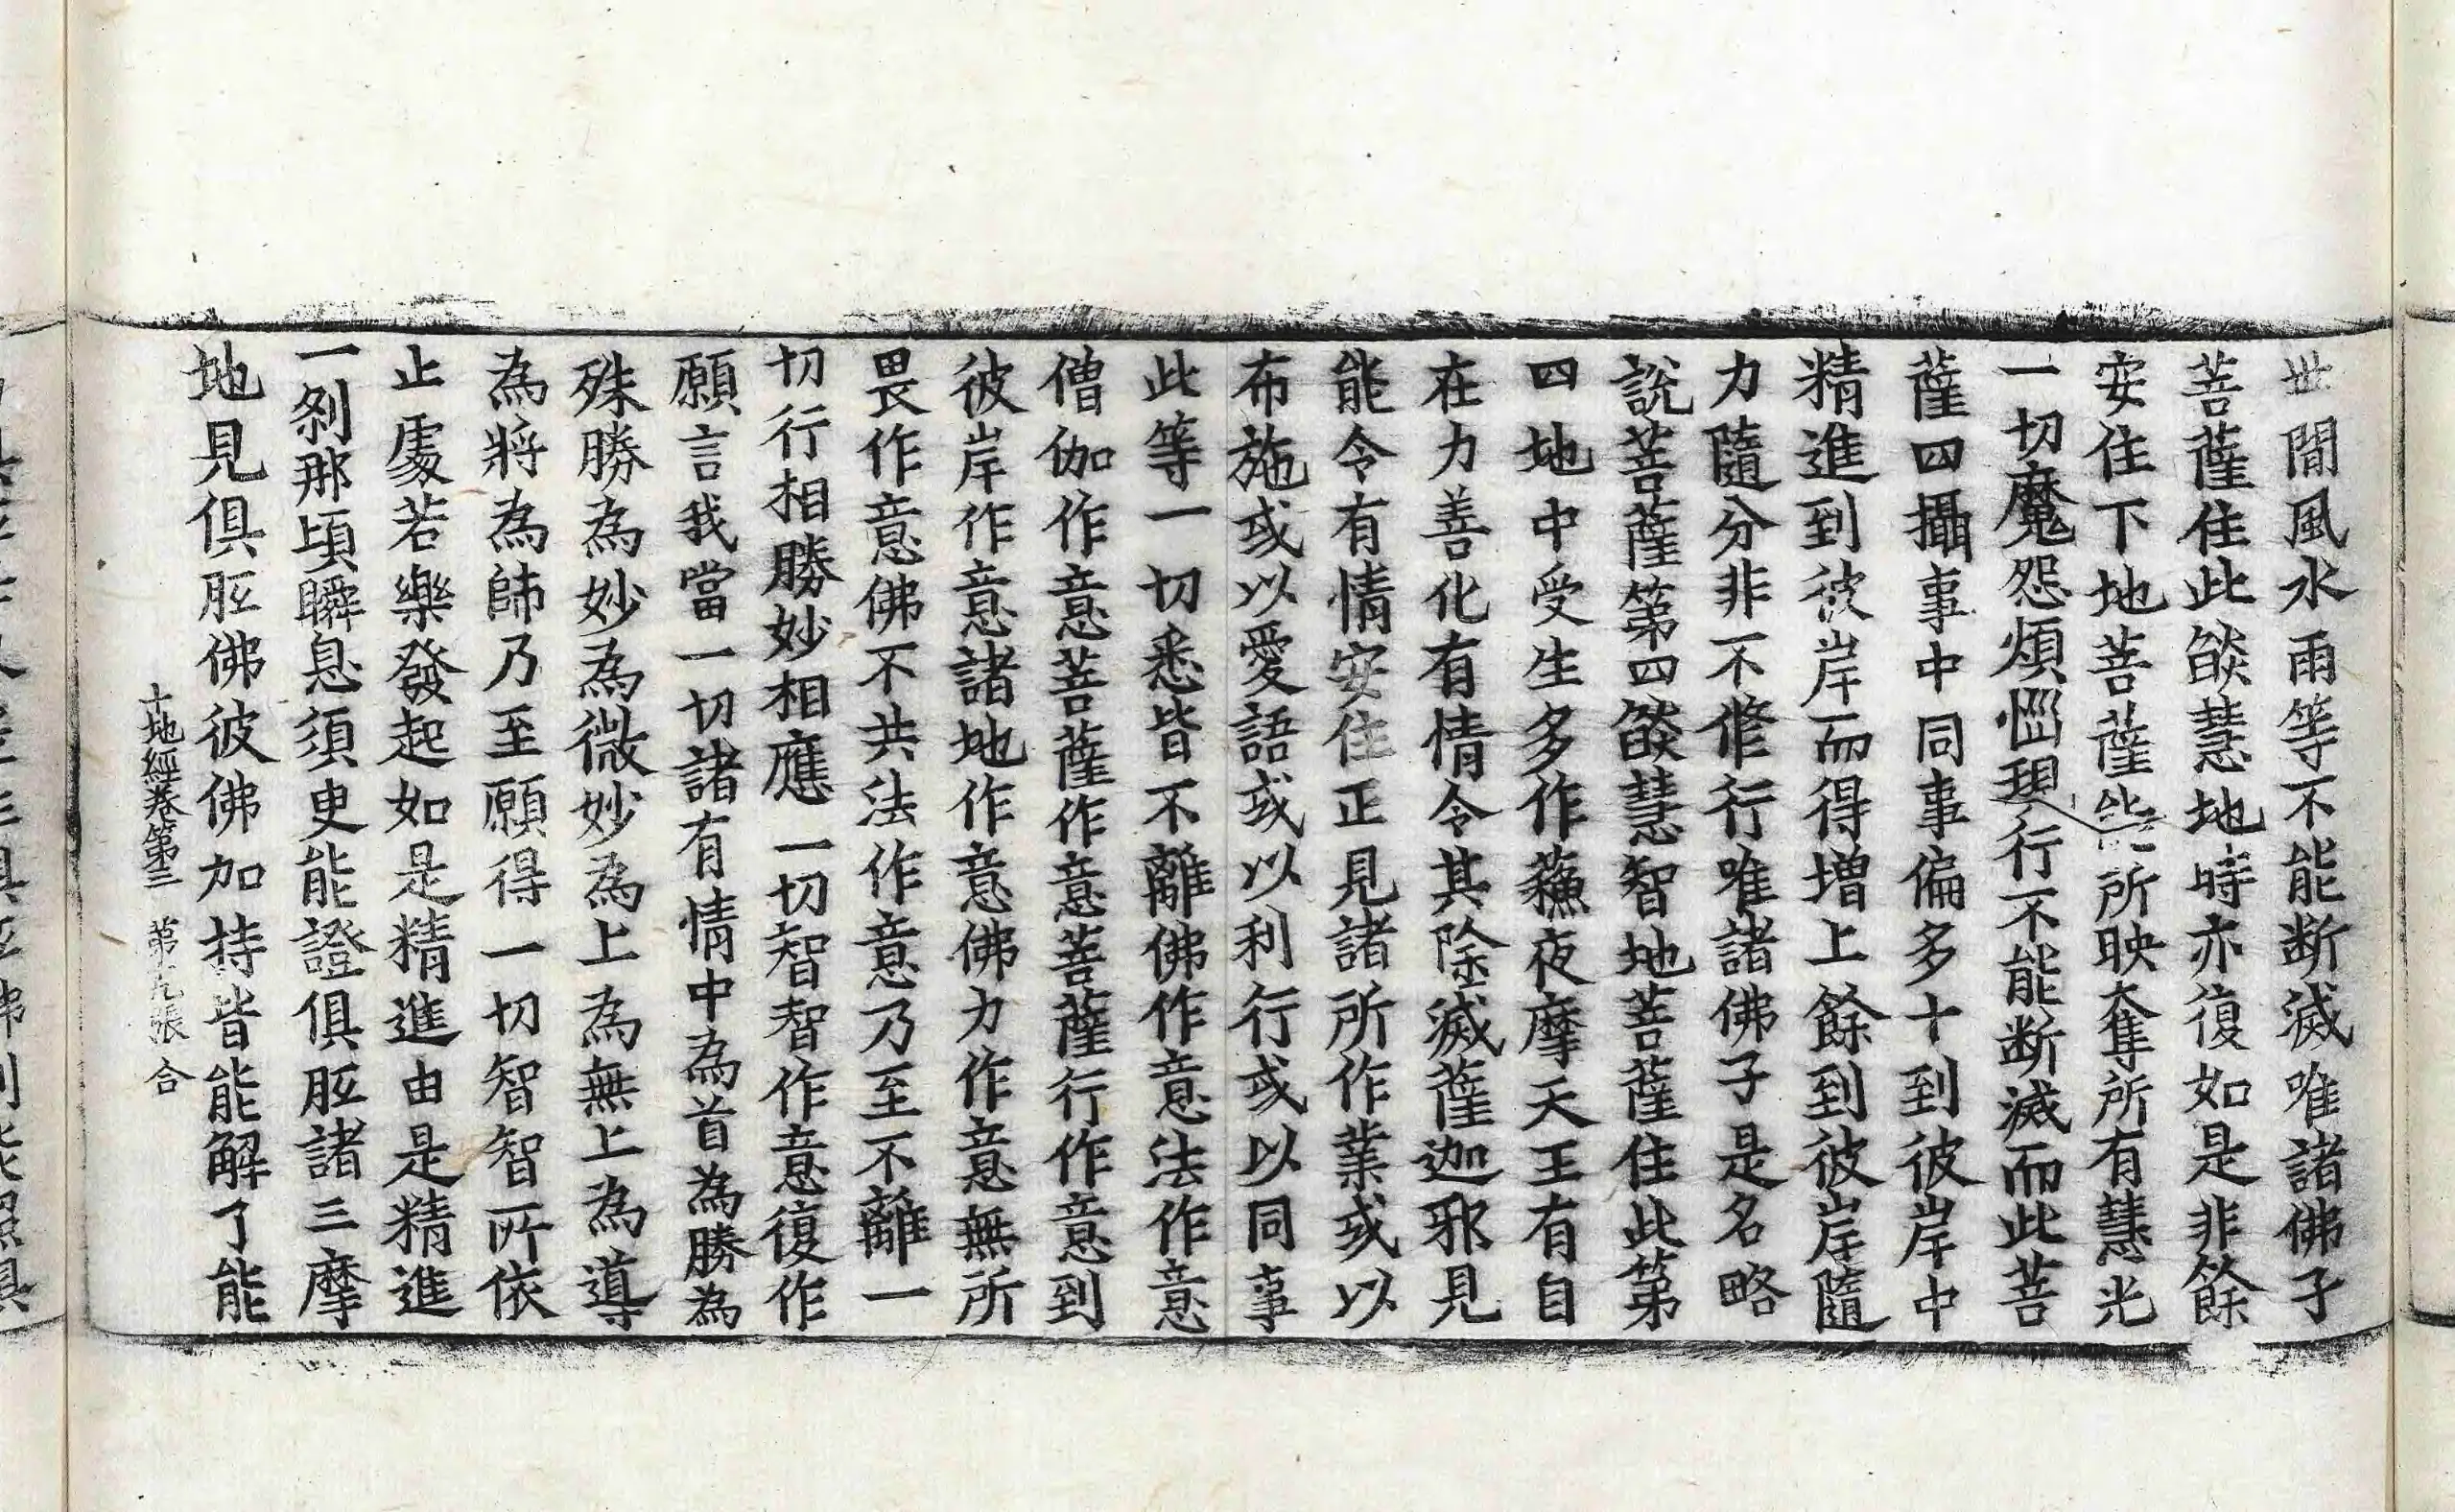 世間風水雨等不能断滅唯諸佛子
菩薩住此燄慧地時亦復如是非餘
安住下地菩薩能所映奪所有慧光
一切魔怨煩惱現行不能断滅而此菩
薩四攝事中同事偏多十到彼岸中
精進到彼岸而得增上餘到彼岸隨
力隨分非不修行唯諸佛子是名略
說菩薩第四燄慧智地菩薩住此第
四地中受生多作蘓夜摩天王有自
在力善化有情令其除滅薩迦邪見
能令有情安住正見諸所作業或以
布施或以愛語或以利行或以同事
此等一切悉皆不離佛作意法作意
僧伽作意菩薩作意菩薩行作意到
彼岸作意諸地作意佛力作意無所
畏作意佛不共法作意乃至不離一
切行相勝妙相應一切智智作意復作
願言我當一切諸有情中為首為勝為
殊勝為妙為微妙為上為無上為導
為將為師乃至願得一切智智所依
止處若樂發起如是精進由是精進
一剎那頃瞬息須臾能證俱胝諸三摩
地見俱胝佛彼佛加持皆能解了能
十地經卷第三 第九張 合